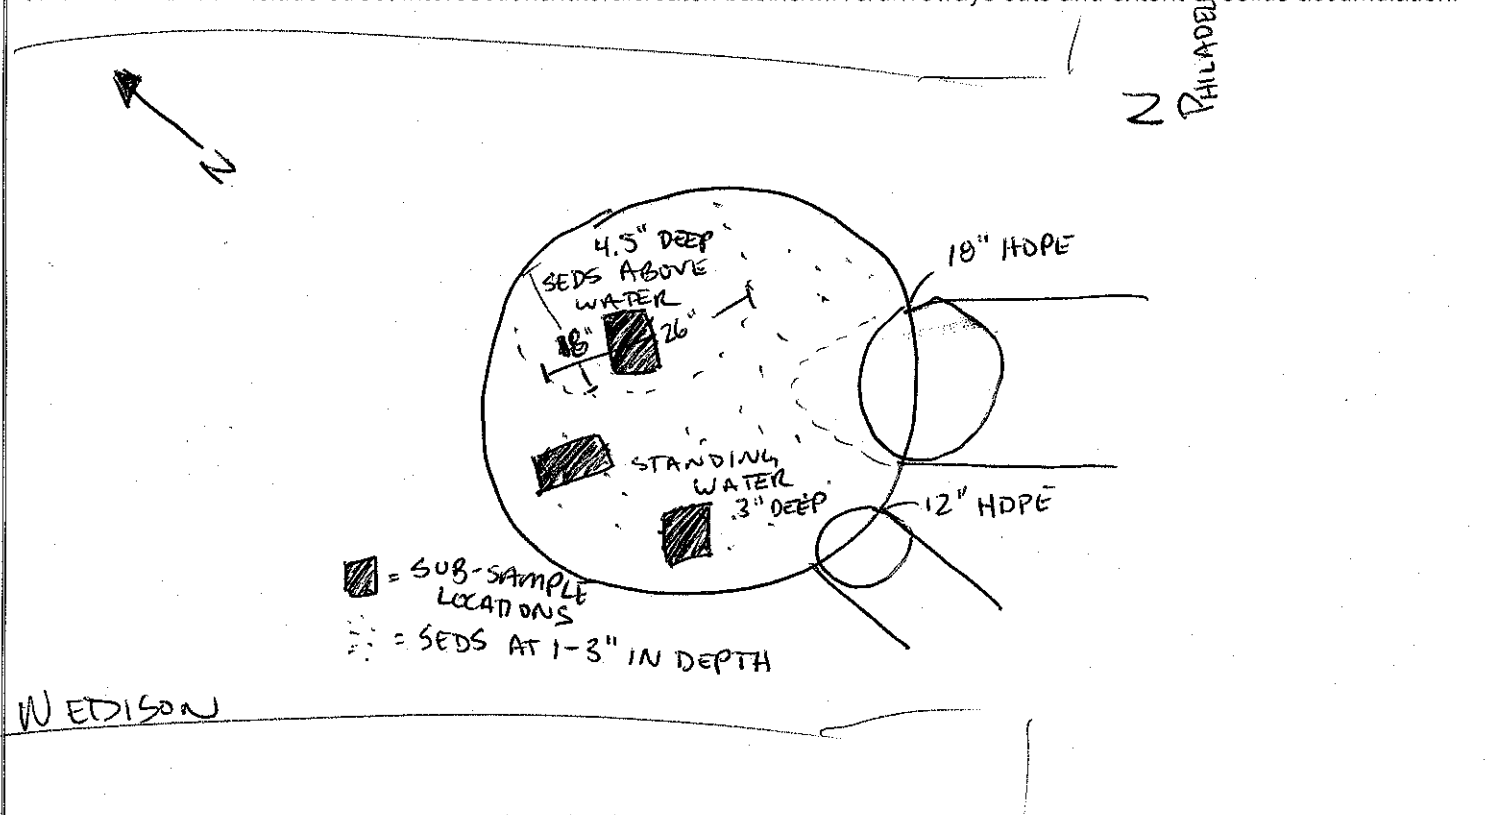 N PHILADEL
N
4.5" DEEP
SEDS ABOVE
WATER
18" HDPE
18"
26"
STANDING
WATER
3" DEEP
12" HDPE
= SUB-SAMPLE
LOCATIONS
= SEDS AT 1-3" IN DEPTH
N EDISON